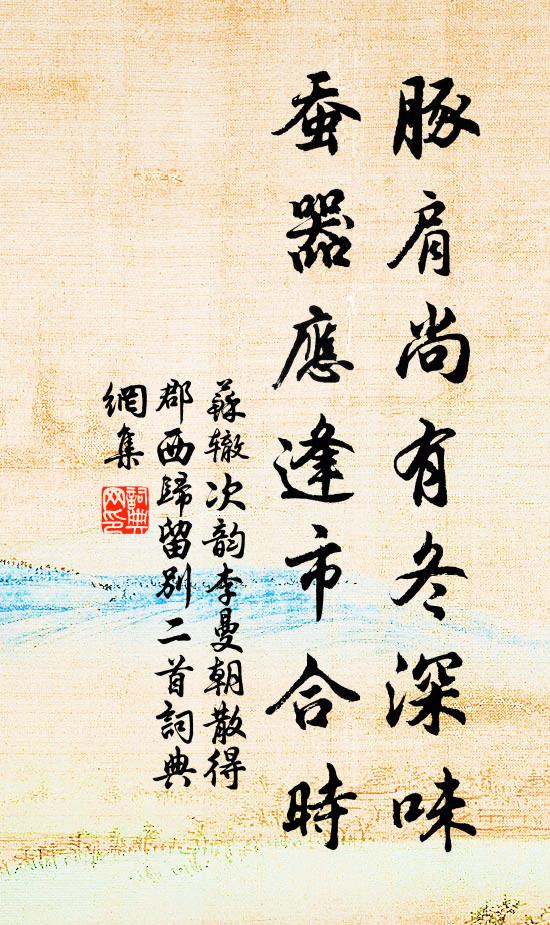 豚肩尚有冬深味
蚕器應逢市合時
蘇辙次韵李曼朝散得
郡西歸留别二首詞典
網集
詞典
网印